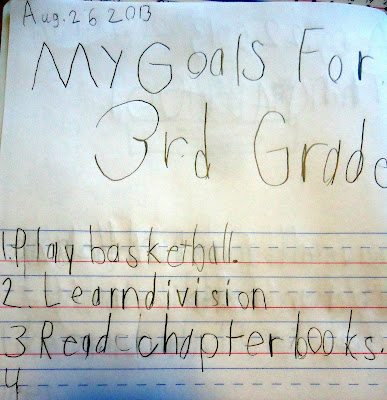 Aug. 26 2013
My Goals For
3rd Grade
1. Play basketball.
2. Learn division
3 Read chapter books.
4